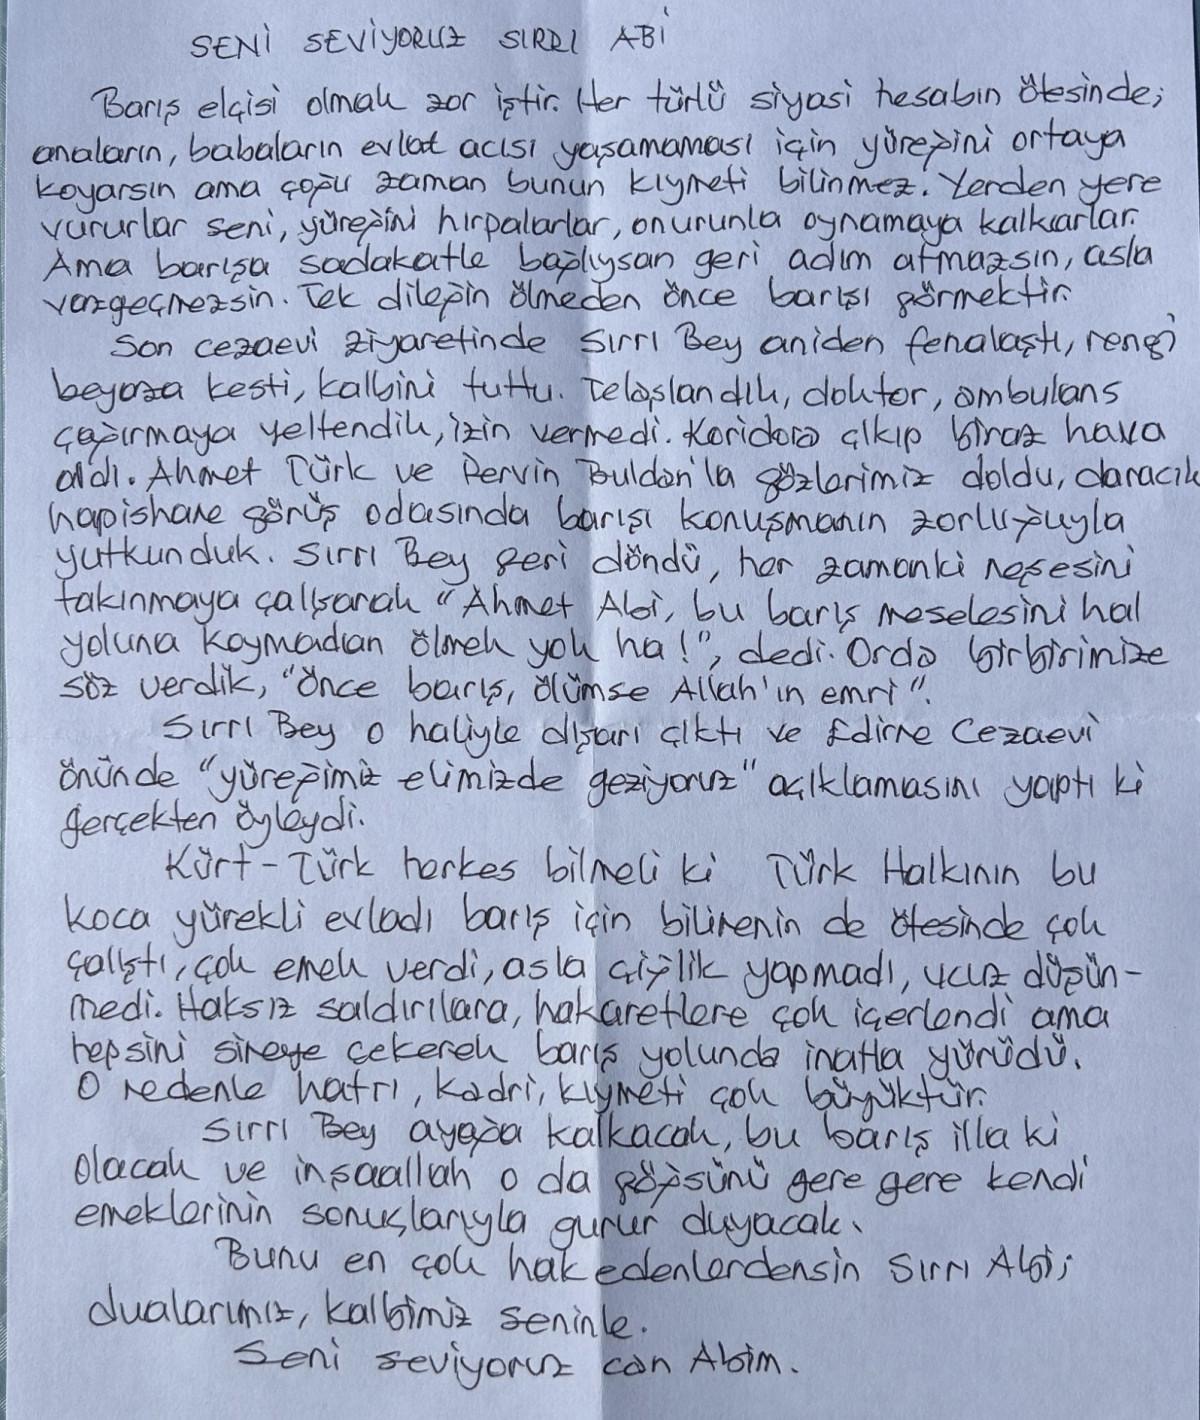 SENİ SEVİYORUZ SIRRI ABİ
Barış elçisi olmak zor iştir. Her türlü siyasi hesabın ötesinde;
anaların, babaların evlat acısı yaşamaması için yüreğini ortaya
koyarsın ama çoğu zaman bunun kıymeti bilinmez. Yerden yere
vururlar seni, yüreğini hırpalarlar, onurunla oynamaya kalkarlar.
Ama barışa sadakatle bağlıysan geri adım atmazsın, asla
vazgeçmezsin. Tek dileğin ölmeden önce barışı görmektir.
Son cezaevi ziyaretinde Sırrı Bey aniden fenalaştı, rengi
beyaza kesti, kalbini tuttu. Telaşlandık, doktor, ambulans
çağırmaya yeltendik, izin vermedi. Koridora çıkıp biraz hava
aldı. Ahmet Türk ve Pervin Buldan'la gözlerimiz doldu, daracık
hapishane görüş odasında barışı konuşmanın zorluğuyla
yutkunduk. Sırrı Bey geri döndü, her zamanki neşesini
takınmaya çalışarak "Ahmet Abi, bu barış meselesini hal
yoluna koymadan ölmek yok ha!", dedi. Orda birbirimize
söz verdik, "Önce barış, ölümse Allah'ın emri".
Sırrı Bey o haliyle dışarı çıktı ve Edirne Cezaevi
önünde "yüreğimiz elimizde geziyoruz" açıklamasını yaptı ki
gerçekten öyleydi.
Kürt-Türk herkes bilmeli ki Türk Halkının bu
koca yürekli evladı barış için bilinenin de ötesinde çok
çalıştı, çok emek verdi, asla çiğlik yapmadı, ucuz düşün-
medi. Haksız saldırılara, hakaretlere çok içerlendi ama
hepsini sineye çekerek barış yolunda inatla yürüdü.
O nedenle hatrı, kadri, kıymeti çok büyüktür.
Sırrı Bey ayağa kalkacak, bu barış illa ki
olacak ve inşaallah o da göğsünü gere gere kendi
emeklerinin sonuçlarıyla gurur duyacak.
Bunu en çok hak edenlerdensin Sırrı Abi;
dualarımız, kalbimiz seninle.
Seni seviyoruz can Abim.